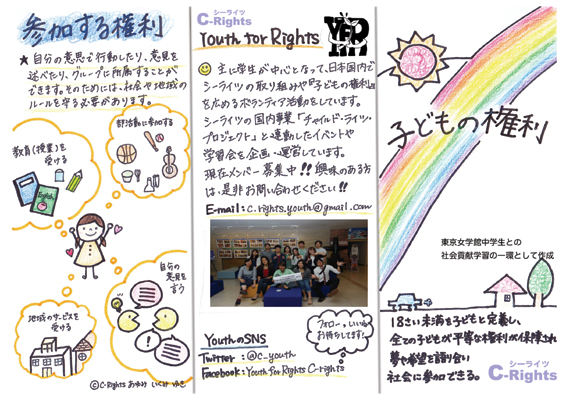 参加する権利
★自分の意思で行動したり、意見を
述べたり、グループに所属することが
できます。そのためには、社会や地域の
ルールを守る必要があります。
部活動に参加する
教育(授業)を
受ける
English
自分の
意見を
言う
地域のサービスを
受ける
©C-Rights あゆみ いくみ ゆき
シーライツ
C-Rights
Youth for Rights
YFR
主に学生が中心となって、日本国内で
シーライツの取り組みや『子どもの権利』
を広めるボランティア活動をしています。
シーライツの国内事業「チャイルド・ライツ・
プロジェクト」と連動したイベントや
学習会を企画・運営しています。
現在メンバー募集中!!興味のある方
は、是非お問い合わせください!!
E-mail:c.rights.youth@gmail.com
YouthのSNS
フォロー、いいね
お待ちしてます!
Twitter:@c_youth
Facebook:Youth for Rights C-rights
子どもの権利
東京女学館中学生との
社会貢献学習の一環として作成
18さい未満を子どもと定義し、
全ての子どもが平等な権利が保障され
夢や希望を語り合い
社会に参加できる。
シーライツ
C-Rights